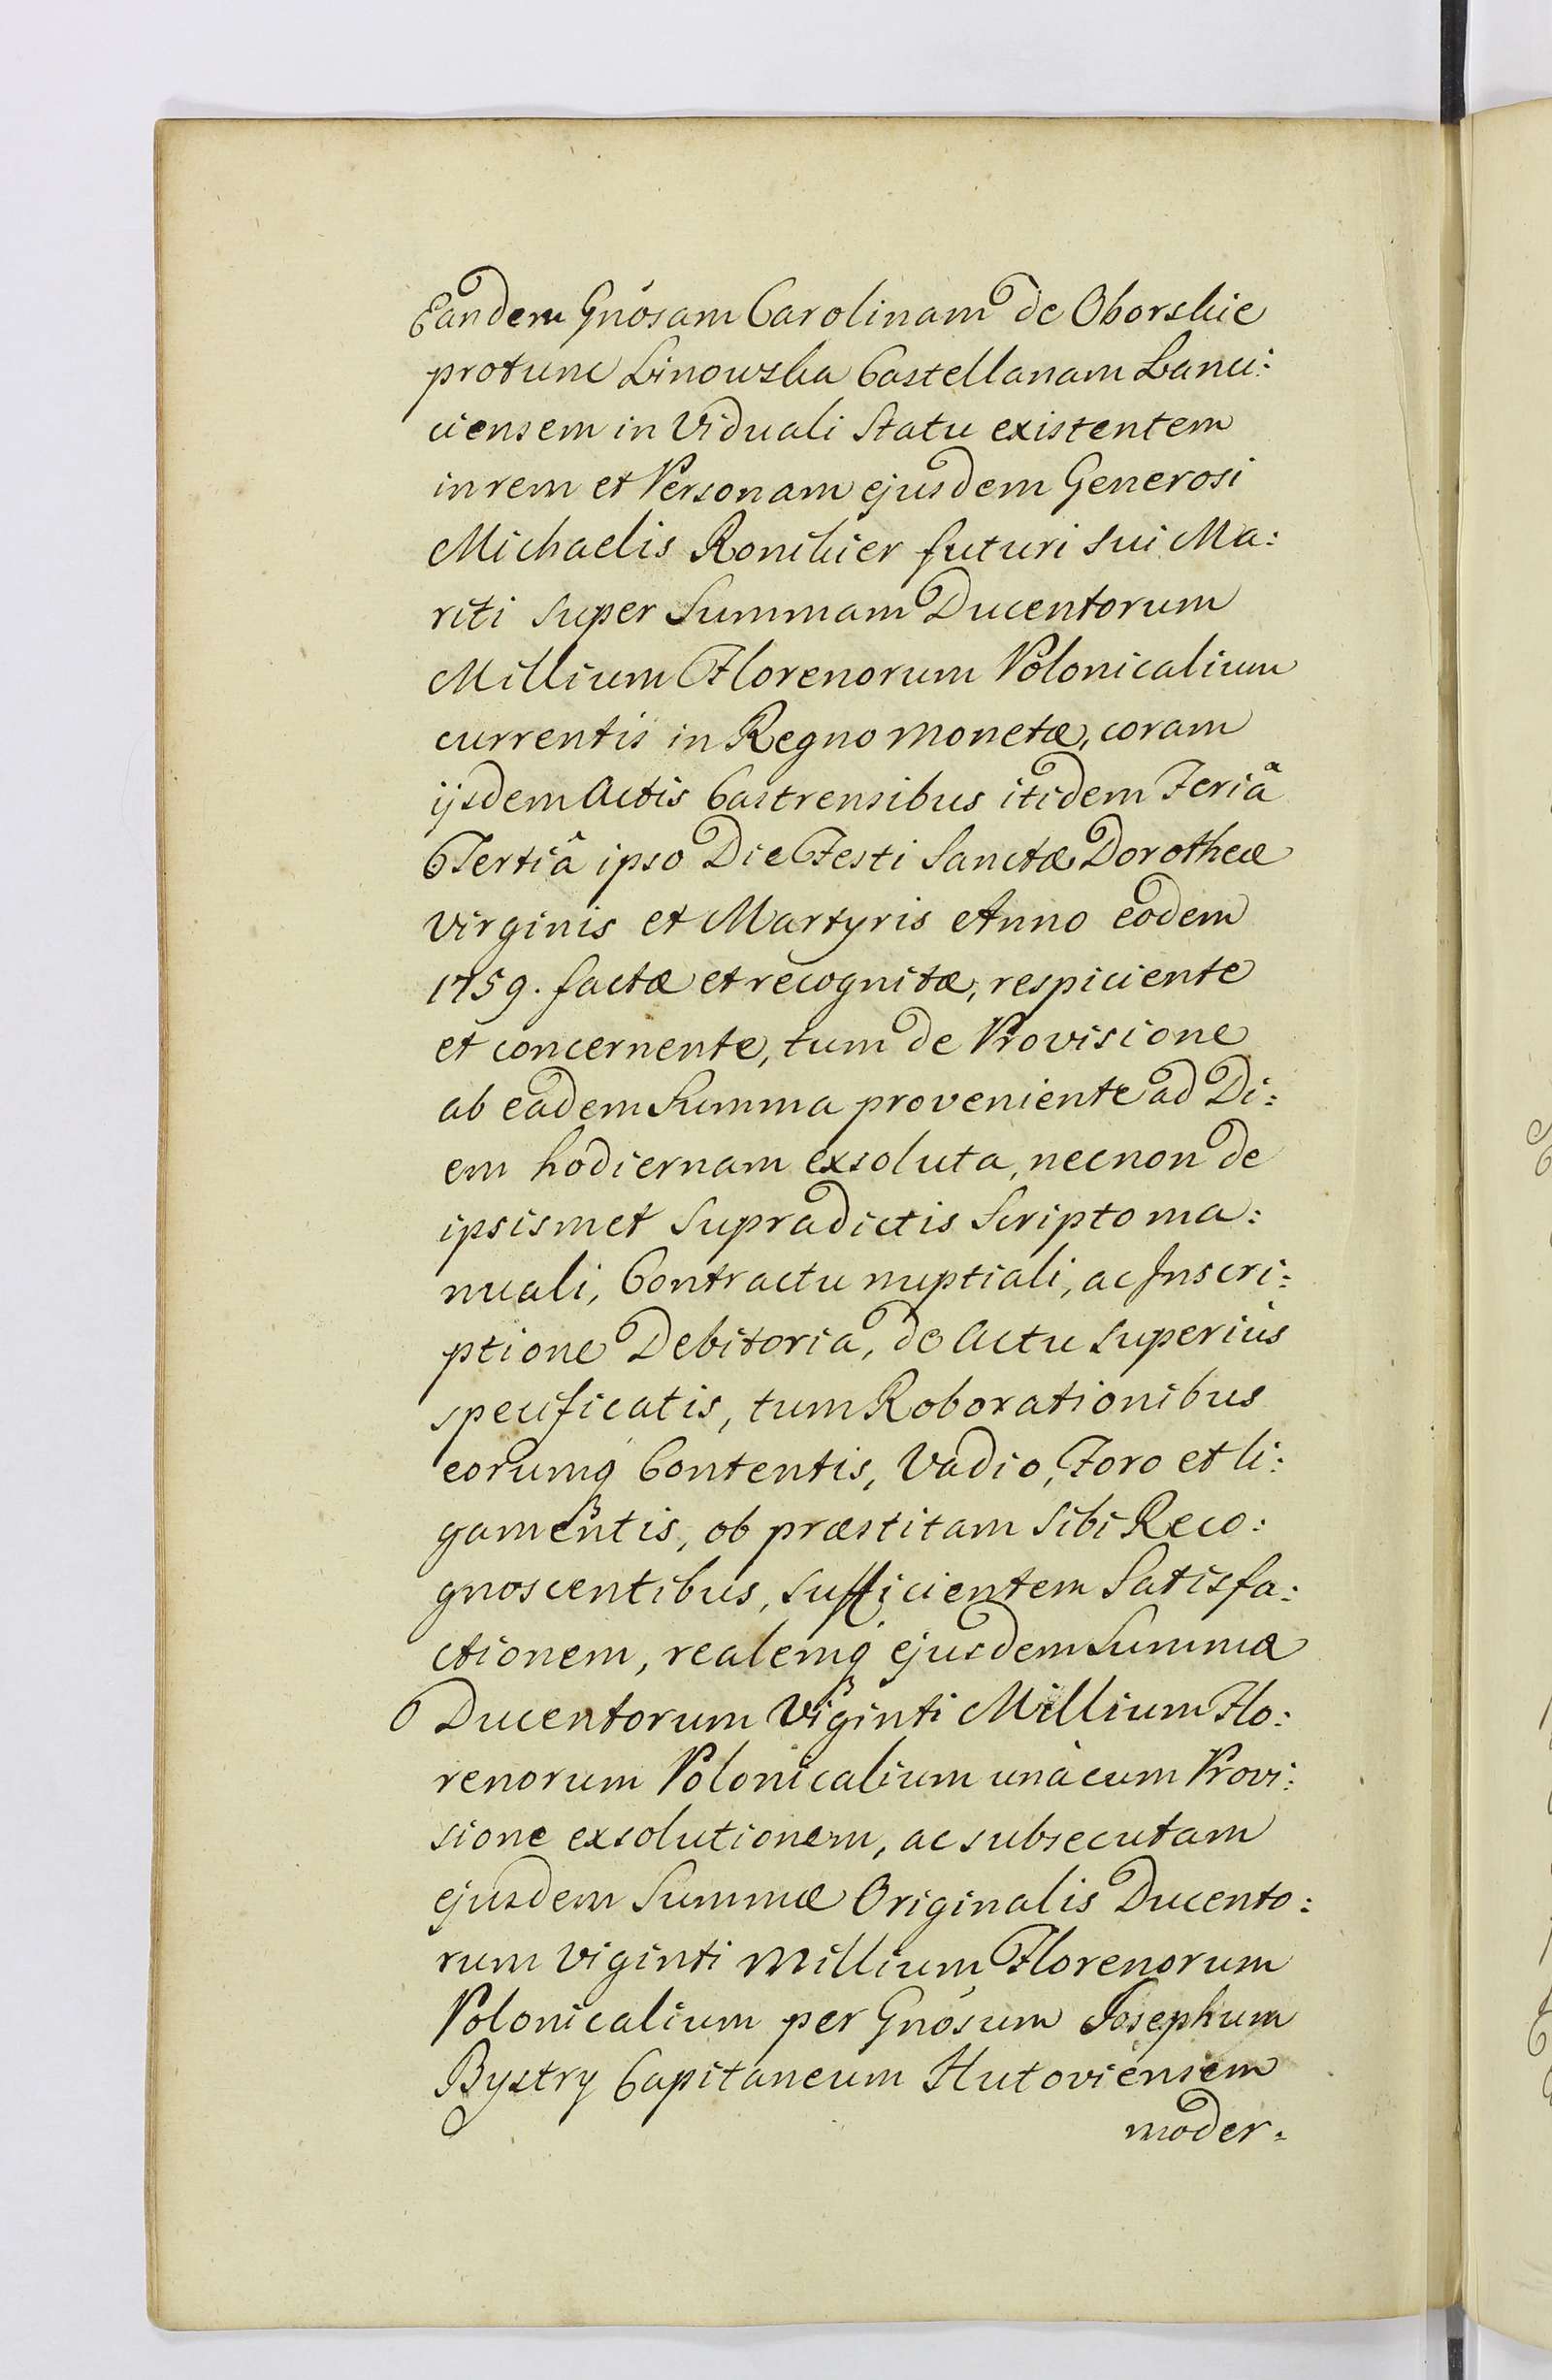 Eandem Gnősam Carolinam de Oborskie
protunc Linowska Castellanam Lanci:
ciensem in Viduali Statu existentem
in rem et Personam ejusdem Generosi
Michaelis Ronikier futuri sui Ma:
riti super Summam Ducentorum
Millium Florenorum Polonicalium
currentis in Regno monetæ, coram
ijsdem Actis Castrensibus itidem Feriâ
Tertiâ ipso Die Festi Sanctæ Dorotheæ
Virginis et Martyris Anno eodem
1759. factæ et recognitæ, respiciente
et concernente, tum de Provisione
ab eadem Summa proveniente ad Di:
em hodiernam exsoluta, necnon de
ipsismet supradictis Scripto ma:
nuali, Contractu nuptiali, ac Inscri:
ptione Debitoria, de Actu superiùs
specificatis, tum Roborationibus
eorumq́ Contentis, Vadio, Foro et li:
gamentis, ob præstitam sibi Reco:
gnoscentibus, sufficientem Satisfa:
ctionem, realemq́ ejusdem Summæ
Ducentorum Viginti Millium Flo:
renorum Polonicalium unà cum Provi:
sione exsolutionem, ac subsecutam
ejusdem Summæ Originalis Ducento:
rum Viginti Millium Florenorum
Polonicalium per Gnősum Josephum
Bystry Capitaneum Hutoviensem
moder: